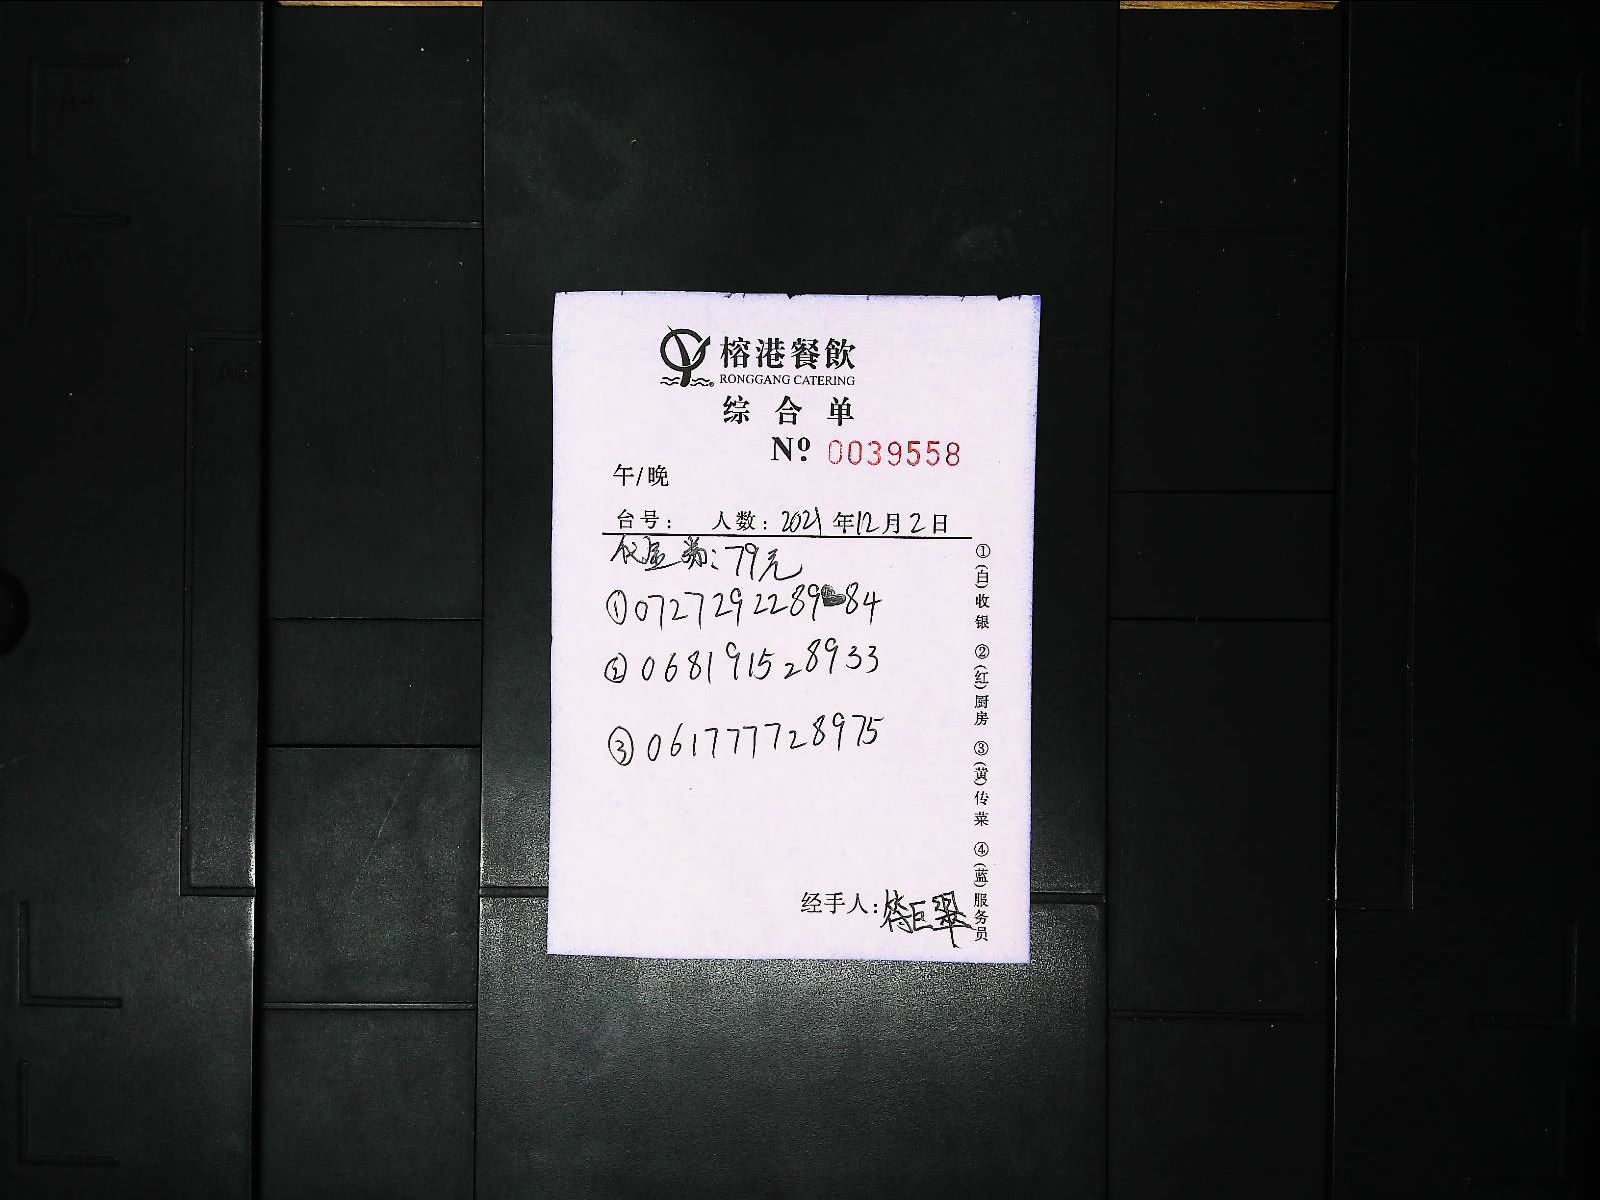 榕港餐飲
RONGGANG CATERING
综合单
Nº 0039558
午/晚
台号: 人数: 2021年12月2日
代金券:79元
①072729228984
②068191528933
③061777728975
经手人:符巨翠
①(白)收银 ②(红)厨房 ③(黄)传菜 ④(蓝)服务员